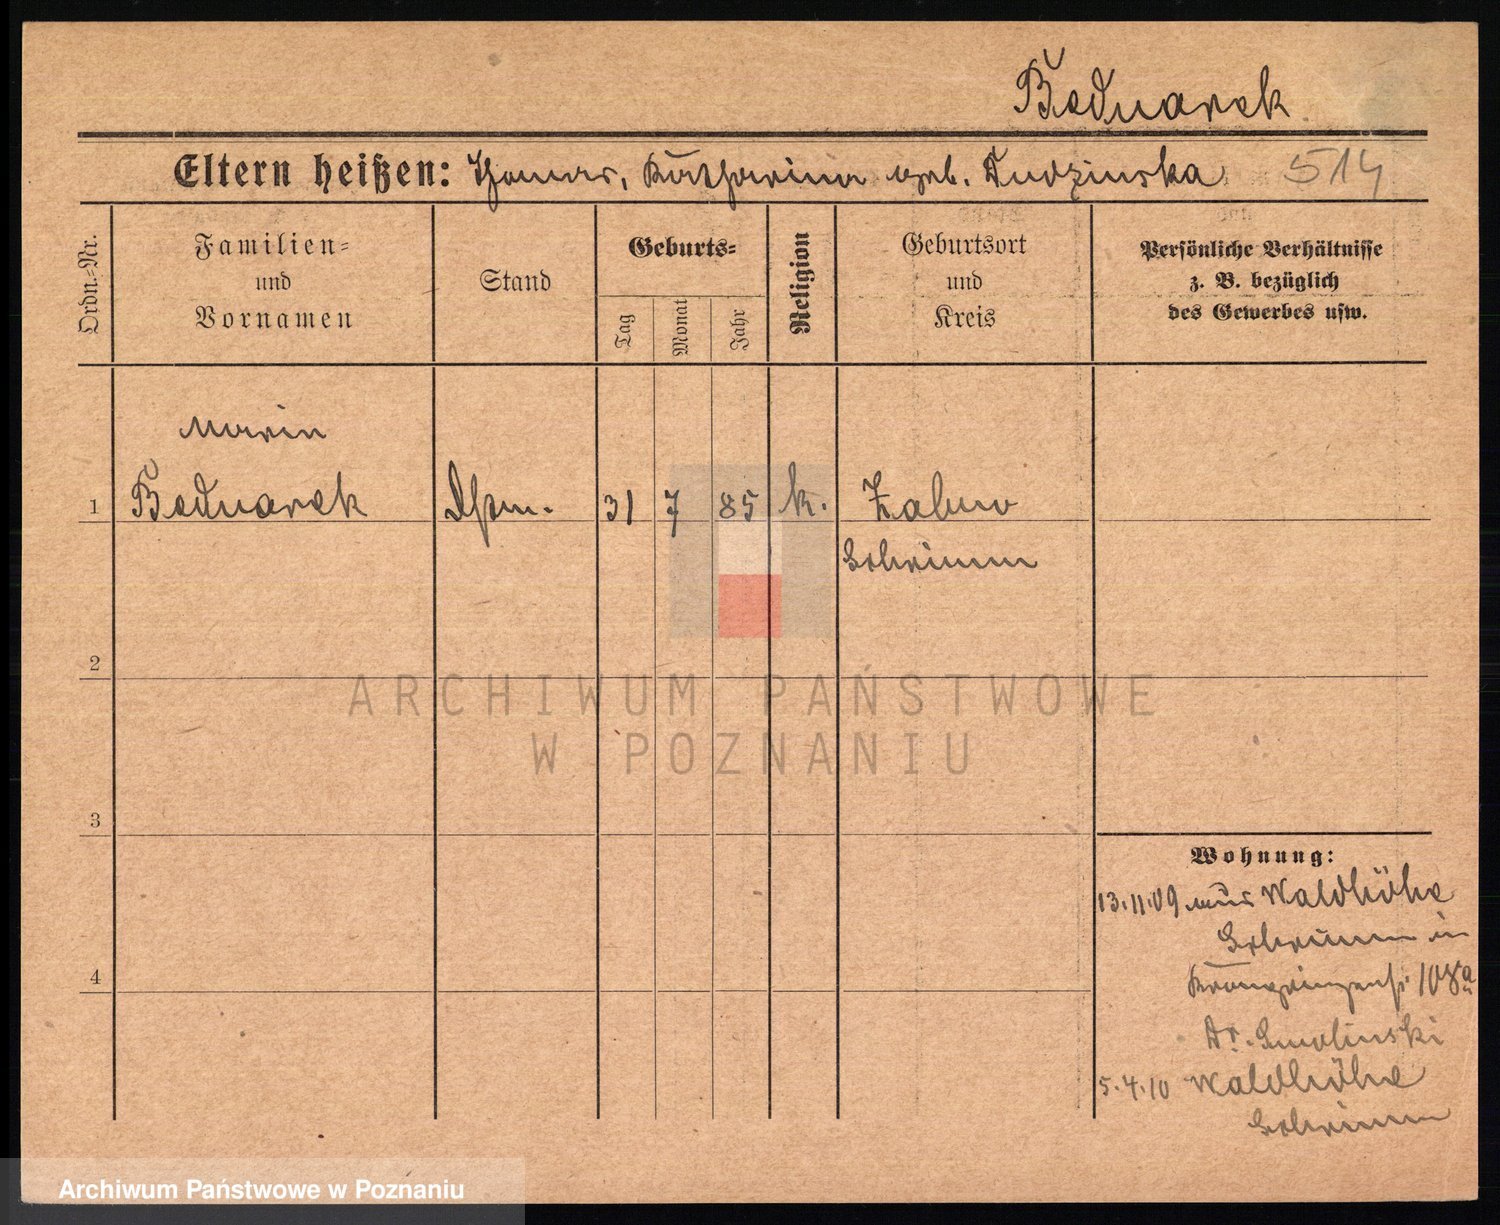 Bednarek
Eltern heißen: Thomas, Katharina geb. Dudzinska 514
Ordn.-Nr.
Familien-
und
Vornamen
Stand
Geburts-
Tag
Monat
Jahr
Religion
Geburtsort
und
Kreis
Persönliche Verhältnisse
z. B. bezüglich
des Gewerbes usw.
Maria
1 Bednarek 31 7 85 k.
Schrimm
2
ARCHIWUM PAŃSTWOWE
W POZNANIU
3
Wohnung:
13.11.09 aus Waldhöhe
Schrimm in
Kronprinzenstr. 108a
Dr. Smolinski
4
5.4.10 Waldhöhe
Schrimm
Archiwum Państwowe w Poznaniu